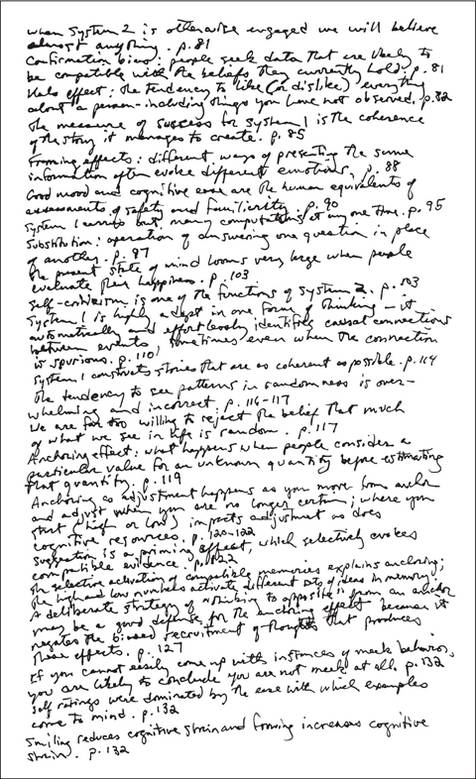 when System 2 is otherwise engaged we will believe
almost anything. p. 81
Confirmation bias: people seek data that are likely to
be compatible with the beliefs they currently hold. p. 81
Halo effect: the tendency to like (or dislike) everything
about a person – including things you have not observed. p. 82
The measure of success for System 1 is the coherence
of the story it manages to create. p. 85
Framing effects: different ways of presenting the same
information often evoke different emotions. p. 88
Good mood and cognitive ease are the human equivalents of
assessments of safety and familiarity. p. 90
System 1 carries out many computations at any one time. p. 95
Substitution: operation of answering one question in place
of another. p. 97
The present state of mind looms very large when people
evaluate their happiness. p. 103
Self-criticism is one of the functions of System 2. p. 103
System 1 is highly adept in one form of thinking – it
automatically and effortlessly identifies causal connections
between events, sometimes even when the connection
is spurious. p. 110
System 1 constructs stories that are as coherent as possible. p. 114
The tendency to see patterns in randomness is over-
whelming and incorrect p. 116-117
We are far too willing to reject the belief that much
of what we see in life is random. p. 117
Anchoring effect: what happens when people consider a
particular value for an unknown quantity before estimating
that quantity. p. 119
Anchoring as adjustment happens as you move from anchor
and adjust when you are no longer certain; where you
start (high or low) impacts adjustment as does
cognitive resources. p. 120-122
Suggestion is a priming effect, which selectively evokes
compatible evidence. p. 122
The selective activating of compatible memories explains anchoring;
the high and low numbers activate different sets of ideas in memory;
A deliberate strategy of "thinking the opposite" from an anchor
may be a good defense for the anchoring effect because it
negates the biased recruitment of thoughts that produces
these effects. p. 127
If you cannot easily come up with instances of meek behavior,
you are likely to conclude you are not meek at all. p. 132
Self ratings were dominated by the ease with which examples
come to mind. p. 132
Smiling reduces cognitive strain and frowning increases cognitive
strain. p. 132